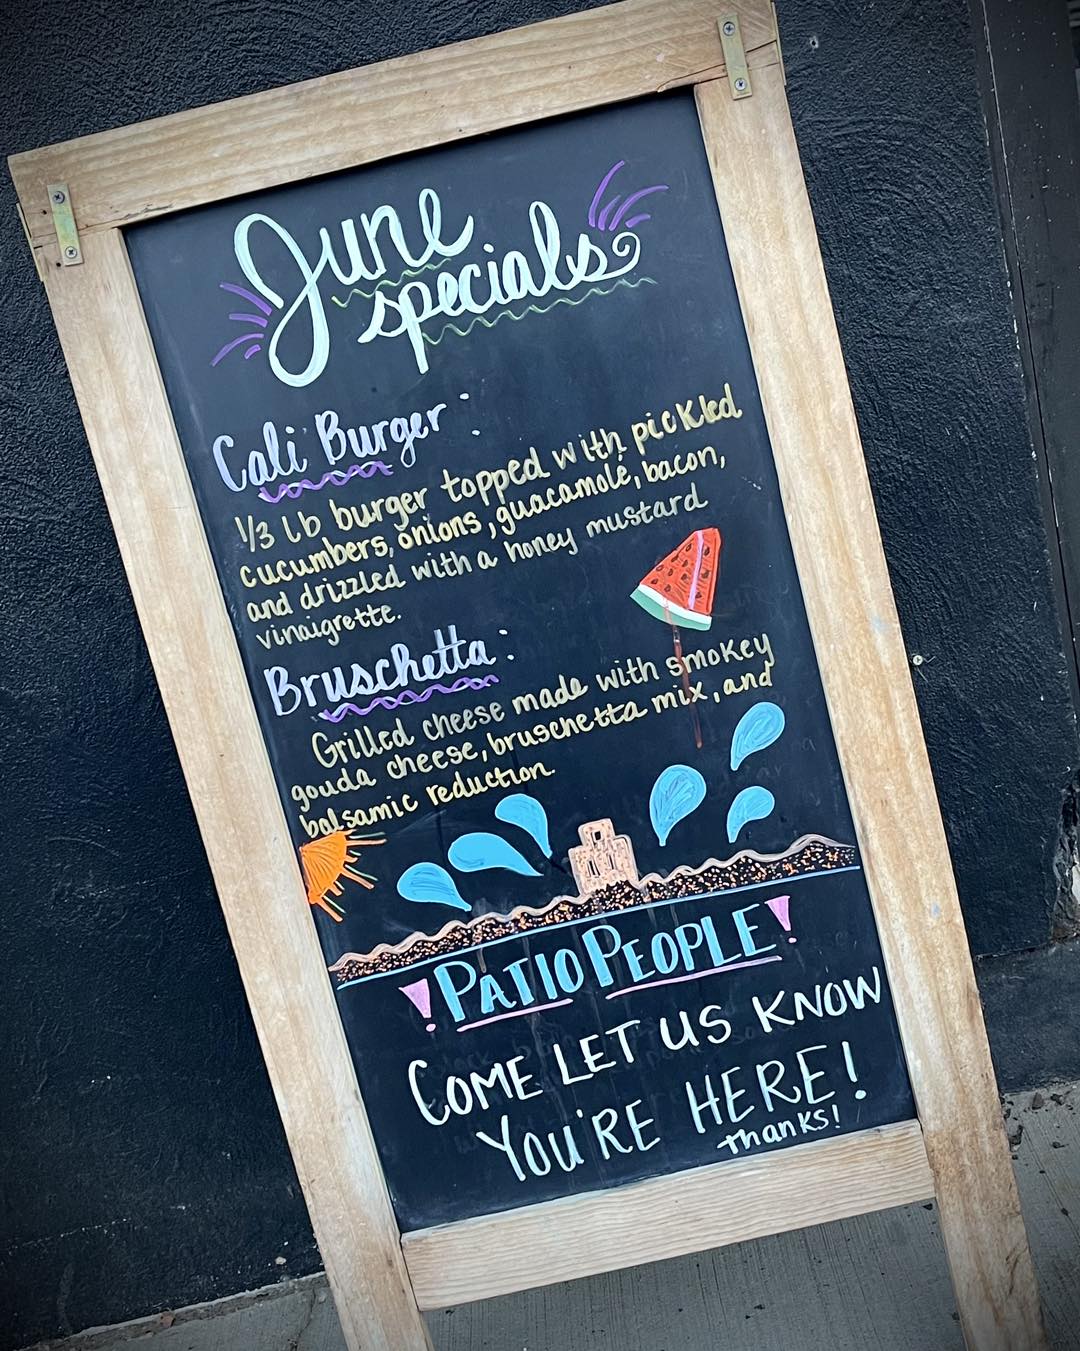 June
specials
Cali Burger:
1/3 lb burger topped with pickled
cucumbers, onions, guacamole, bacon,
and drizzled with a honey mustard
vinaigrette.
Bruschetta:
Grilled cheese made with smokey
gouda cheese, bruschetta mix, and
balsamic reduction.
!PATIO PEOPLE!
COME LET US KNOW
YOU'RE HERE!
thanks!